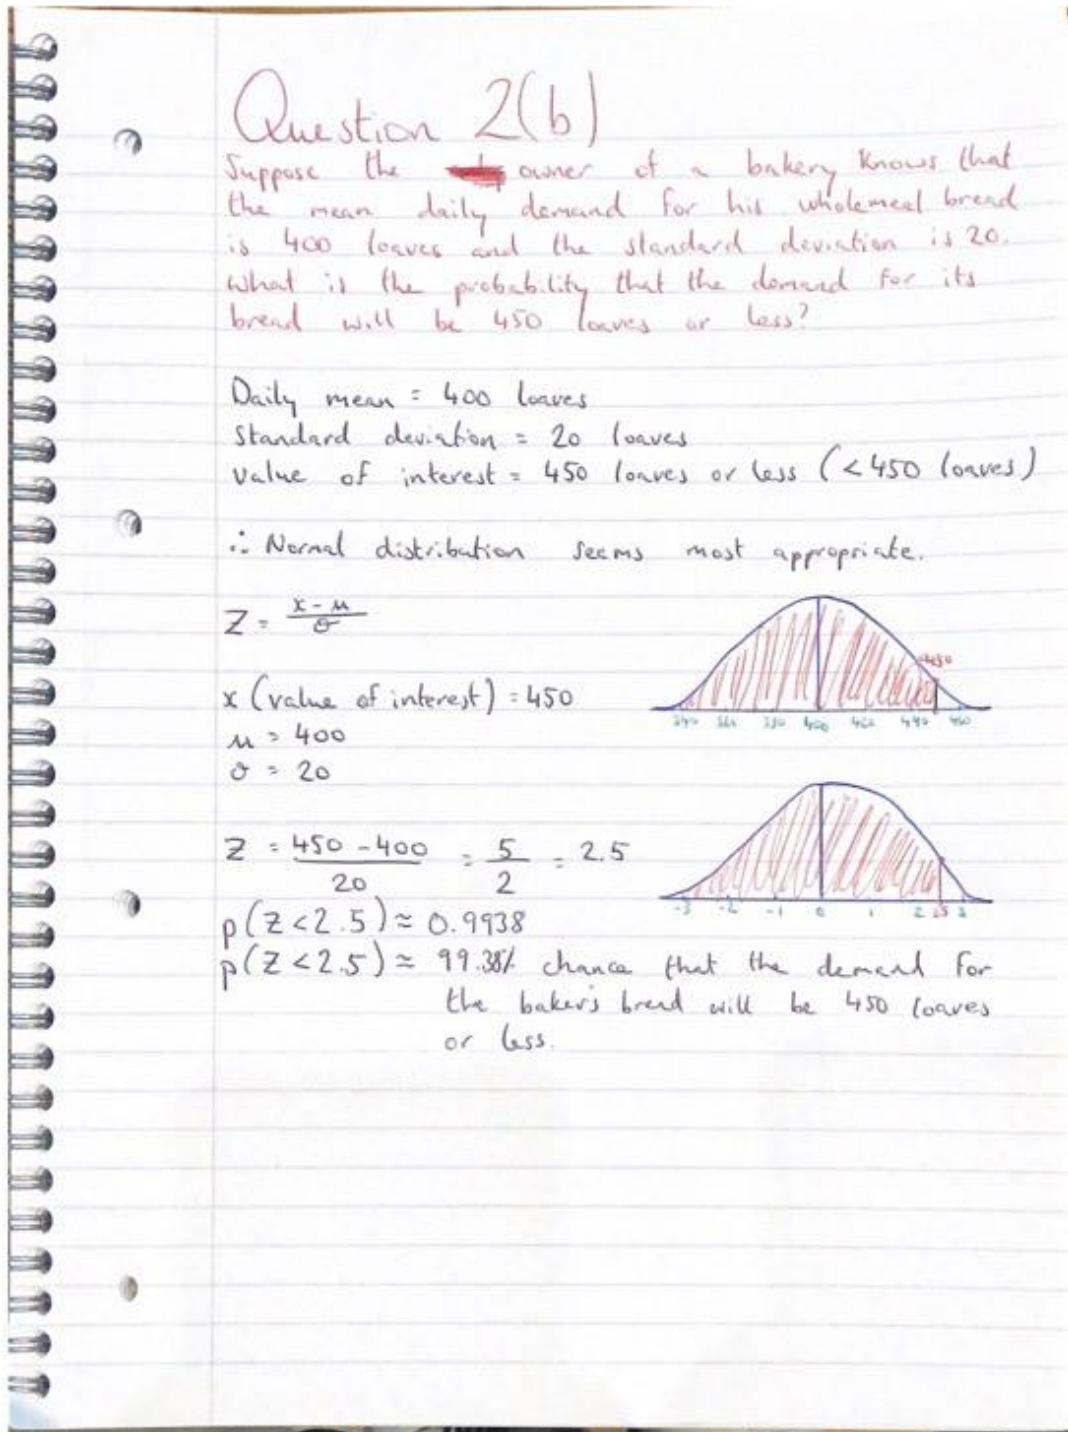 Question 2(b)
Suppose the owner of a bakery knows that
the mean daily demand for his wholemeal bread
is 400 loaves and the standard deviation is 20.
What is the probability that the demand for its
bread will be 450 loaves or less?
Daily mean = 400 loaves
Standard deviation = 20 loaves
Value of interest = 450 loaves or less (<450 loaves)
∴ Normal distribution seems most appropriate.
Z = x - μ / σ
x (value of interest) = 450
μ = 400
σ = 20
450
340 360 380 400 420 440 460
Z = 450 - 400 / 20 = 5 / 2 = 2.5
-3 -2 -1 0 1 2 2.5 3
p(Z<2.5) ≈ 0.9938
p(Z<2.5) ≈ 99.38% chance that the demand for
the baker's bread will be 450 loaves
or less.